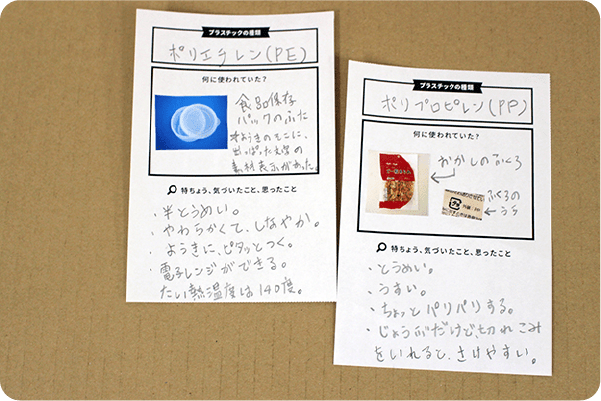 プラスチックの種類
ポリエチレン(PE)
何に使われていた?
食品保存
パックのふた
ようきのそこに、
出っぱった文字の
素材表示があった。
特ちょう、気づいたこと、思ったこと
・半とうめい。
・やわらかくて、しなやか。
・ようきに、ピタッとつく。
・電子レンジができる。
たい熱温度は140度。
プラスチックの種類
ポリプロピレン(PP)
何に使われていた?
おかしのふくろ
ふくろの
うら
プラ
外装:PP
特ちょう、気づいたこと、思ったこと
・とうめい。
・うすい。
・ちょっとパリパリする。
・じょうぶだけど、切れこみ
をいれると、さけやすい。